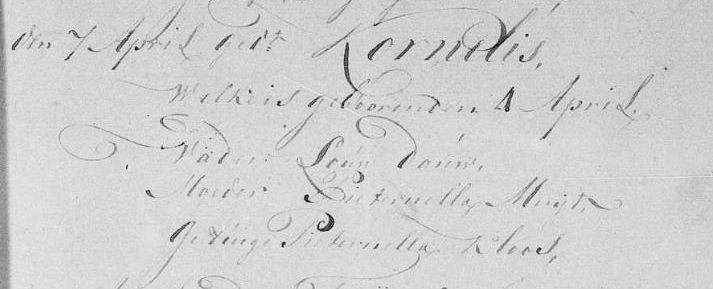 den 7 April gedt Kornelis,
Welke is gebooren den 4 April,
Vader Louw Douw,
Moeder Pieternella Muijt,
Getuige Pieternella Kloos,